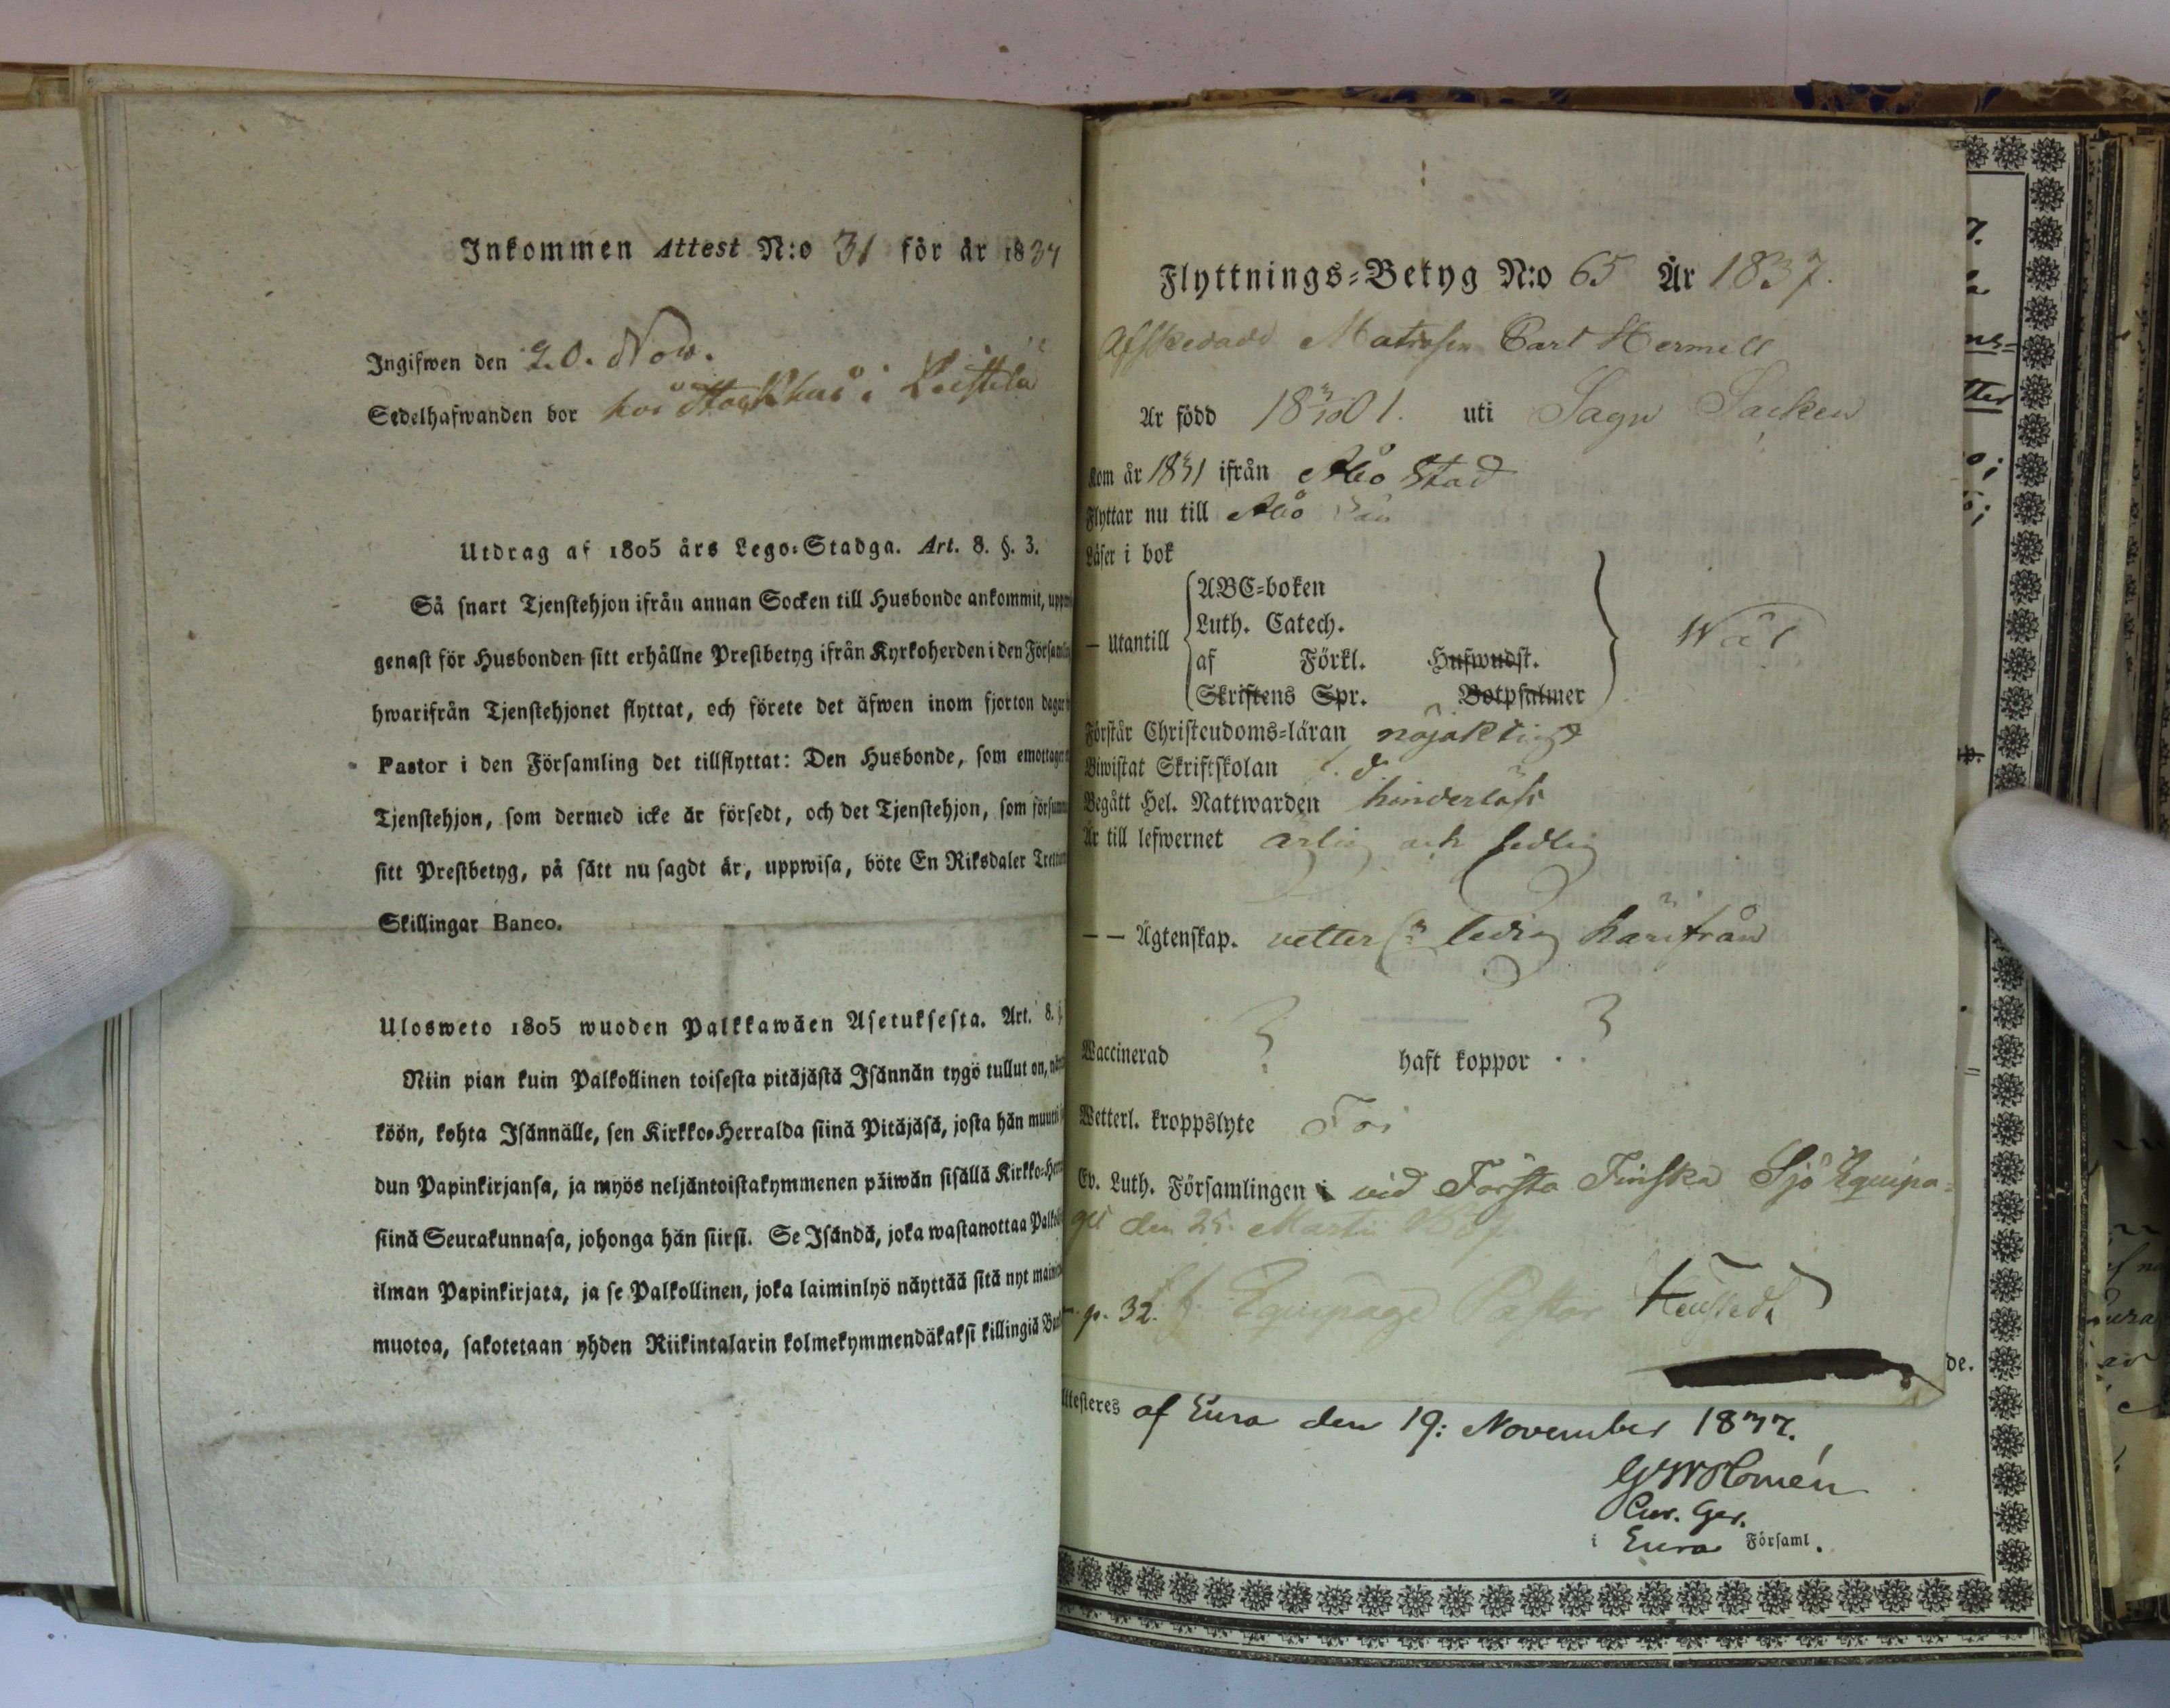 Inkommen Attest N:o 31 för år 1837
Ingifwen den 20. Now.
Sedelhafwanden bor hos i
Utdrag af 1805 års Lego-Stadga. Art. 8. §. 3.
Så snart Tjenstehjon ifrån annan Socken till Husbonde ankommit,
genast för Husbonden sitt erhållne Prestbetyg ifrån Kyrkoherden i den
hwarifrån Tjenstehjonet flyttat, och förete det äfwen inom fjorton
Pastor i den Församling det tillflyttat: Den Husbonde, som
Tjenstehjon, som dermed icke är försedt, och det Tjenstehjon, som
sitt Prestbetyg, på sätt nu sagdt är, uppwisa, böte En Riksdaler
Skillingar Banco.
Ulosweto 1805 wuoden Palkkawäen Asetuksesta. Art. 8.
Niin pian kuin Palkollinen toisesta pitäjästä Isännän tygö tullut on,
köön, kohta Isännälle, sen Kirkko-Herralda siinä Pitäjäsä, josta hän
dun Papinkirjansa, ja myös neljäntoistakymmenen päiwän sisällä
siinä Seurakunnasa, johonga hän siirsi. Se Isändä, joka wastanottaa
ilman Papinkirjata, ja se Palkollinen, joka laiminlyö näyttää sitä nyt
muotoa, sakotetaan yhden Riikintalarin kolmekymmendäkaksi killingiä
Flyttnings-Betyg N:o 65 År 1837.
Afskedade Matrosen Carl Hermell
Är född 18 1. uti Sagu Socken
Kom år 1831 ifrån Åbo Stad
Flyttar nu till Åbo Län
Läser i bok
ABC-boken
Luth. Catech.
— utantill
af Förkl. Hufwudst.
Skriftens Spr. Botpsalmer
Wäl
Förstår Christendoms-läran nöjaktigt
Biwistat Skriftskolan
Begått Hel. Nattwarden hinderlöst
Är till lefwernet ärlig och sedlig
— — Ägtenskap. vetterl: ledig härifrån
Waccinerad ? haft koppor ?
Wetterl. kroppslyte Fri
Ev. Luth. Församlingen i vid Första Finska Sjö Equipa-
get den 25. Martii 1837
p. 32. Equipage Pastor
de.
Attesteres af Eura den 19: November 1837.
i Eura Församl.